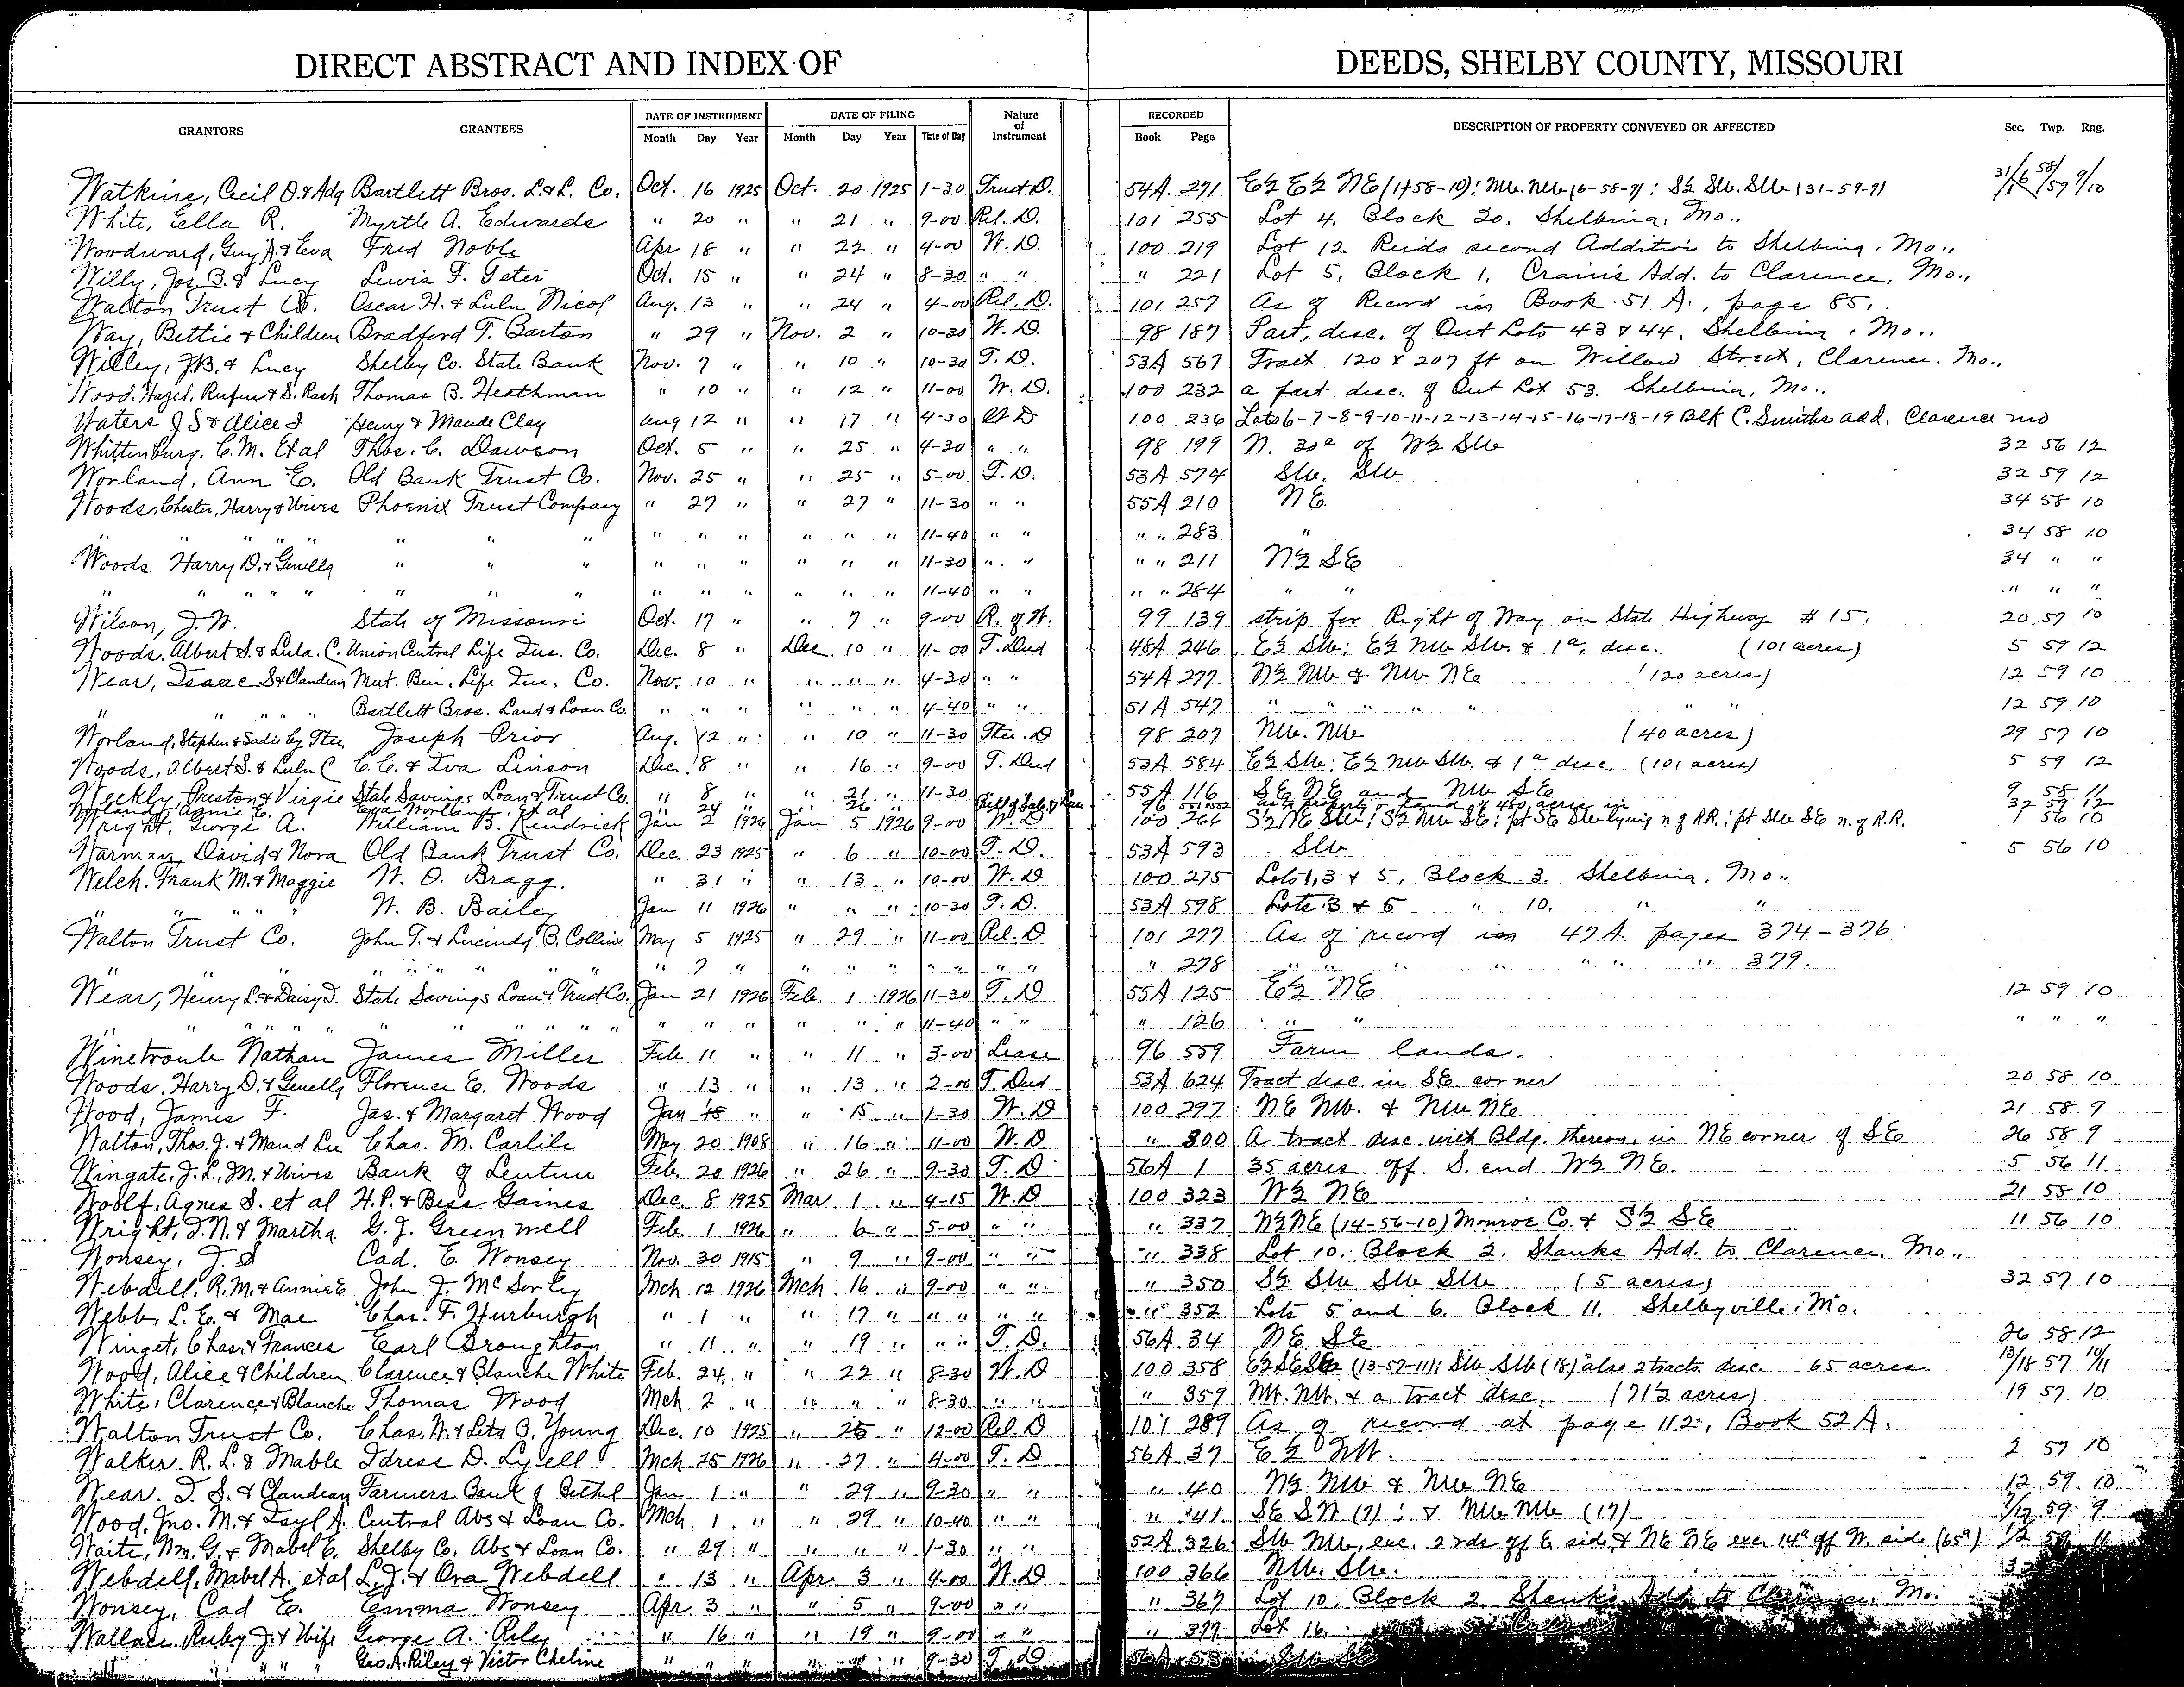 DIRECT ABSTRACT AND INDEX OF DEEDS, SHELBY COUNTY, MISSOURI
GRANTORS GRANTEES DATE OF INSTRUMENT Month Day Year DATE OF FILING Month Day Year Time of Day Nature of Instrument RECORDED Book Page DESCRIPTION OF PROPERTY CONVEYED OR AFFECTED Sec. Twp. Rng.
Watkins, Cecil O. & Ada Bartlett Bros. L. & L. Co. Oct. 16 1925 Oct. 20 1925 1-30 Trust D. 54A 271 E½ E½ NE (1-58-10); NW. NW (6-58-9); S½ SW. SW (31-59-9) 31/6/1 58/59 9/10
White, Ella R. Myrtle A. Edwards " 20 " " 21 " 9-00 Rel. D. 101 255 Lot 4, Block 20, Shelbina, Mo..
Woodward, Guy A. & Eva Fred Noble Apr 18 " " 22 " 4-00 W. D. 100 219 Lot 12 Reids second Addition to Shelbina, Mo..
Willy, Jos. B. & Lucy Lewis F. Teter Oct. 15 " " 24 " 8-30 " " " 221 Lot 5, Block 1, Crain's Add. to Clarence, Mo..
Walton Trust Co. Oscar H. & Lulu Nicol Aug. 13 " " 24 " 4-00 Rel. D. 101 257 As of Record in Book 51 A., page 85.
Way, Bettie & Children Bradford T. Barton " 29 " Nov. 2 " 10-30 W. D. 98 187 Part, desc. of Out Lots 43 & 44, Shelbina, Mo..
Willey, J.B. & Lucy Shelby Co. State Bank Nov. 7 " " 10 " 10-30 T. D. 53A 567 Tract 120 x 207 ft on Willow Street, Clarence, Mo..
Wood, Hazel, Rufus & S. Rash Thomas B. Heathman " 10 " " 12 " 11-00 W. D. 100 232 a part desc. of Out Lot 53. Shelbina, Mo..
Waters J S & Alice I Henry & Maude Clay Aug 12 " " 17 " 4-30 W D 100 236 Lots 6-7-8-9-10-11-12-13-14-15-16-17-18-19 Blk C. Smiths add. Clarence Mo
Whittenburg, C. M. Et al Thos. C. Dawson Oct. 5 " " 25 " 4-30 " " 98 199 N. 30a of W½ SW 32 56 12
Worland, Ann E. Old Bank Trust Co. Nov. 25 " " 25 " 5-00 T. D. 53A 574 SW. SW 32 59 12
Woods, Chester, Harry & Wives Phoenix Trust Company " 27 " " 27 " 11-30 " " 55A 210 NE. 34 58 10
" " " " " " " " " " " " " " 11-40 " " " " 283 " 34 58 10
Woods Harry D. & Genella " " " " " " " " " 11-30 " " " " 211 N½ SE 34 " "
" " " " " " " " " " " " " 11-40 " " " " 284 " " " " "
Wilson, J. W. State of Missouri Oct. 17 " " 7 " 9-00 R. of W. 99 139 strip for Right of Way on State Highway # 15. 20 57 10
Woods, Albert S. & Lula. C. Union Central Life Ins. Co. Dec. 8 " Dec 10 " 11-00 T. Deed 48A 246 E½ SW; E½ NW SW. & 1a, desc. (101 acres) 5 59 12
Wear, Isaac S & Claudean Mut. Ben. Life Ins. Co. Nov. 10 " " " " 4-30 " " 54A 277 N½ NW & NW NE (120 acres) 12 59 10
" " " " Bartlett Bros. Land & Loan Co. " " " " " " 4-40 " " 51A 547 " " " " " " " 12 59 10
Worland, Stephen & Sadie by Ttee Joseph Prior Aug. 12 " " 10 " 11-30 Ttee. D 98 207 NW. NW (40 acres) 29 57 10
Woods, Albert S. & Lulu C C. C. & Iva Linson Dec. 8 " " 16 " 9-00 T. Deed 53A 584 E½ SW; E½ NW SW. & 1a desc. (101 acres) 5 59 12
Weekly, Preston & Virgie State Savings Loan & Trust Co. " 8 " " 21 " 11-30 55A 116 SE NE and NW SE 9 58 11
Worland, Annie E. Worland et al " 24 " " 26 " Bill of Sale & Lease 96 551-552 480 acres in 32 59 12
Wright, George A. William B. Kendrick Jan 2 1926 Jan 5 1926 9-00 W. D 100 266 S½ NE SW; S½ NW SE; pt SE SW lying n of RR.; pt SW SE n. of R.R. 1 56 10
Warman, David & Nora Old Bank Trust Co. Dec. 23 1925 " 6 " 10-00 T. D. 53A 593 SW 5 56 10
Welch, Frank M. & Maggie W. O. Bragg. " 31 " " 13 " 10-00 W. D 100 275 Lots 1, 3 & 5, Block 3. Shelbina, Mo..
" " " " W. B. Bailey Jan 11 1926 " " " 10-30 T. D. 53A 598 Lots 3 & 5 " 10. " "
Walton Trust Co. John T. & Lucinda B. Collins May 5 1925 " 29 " 11-00 Rel. D 101 277 As of record in 47A. pages 374-376
" " " " " " " " " 7 " " " " " " " " " 278 " " " " " " " 379.
Wear, Henry L. & Daisy D. State Savings Loan & Trust Co. Jan 21 1926 Feb. 1 1926 11-30 T. D 55A 125 E½ NE 12 59 10
" " " " " " " " " " " " " " " " " 11-40 " " " 126 " " " " "
Winetroub Nathan James Miller Feb 11 " " 11 " 3-00 Lease 96 559 Farm lands.
Woods, Harry D. & Genella Florence E. Woods " 13 " " 13 " 2-00 T. Deed 53A 624 Tract desc in SE. corner 20 58 10
Wood, James F. Jas. & Margaret Wood Jan 18 " " 15 " 1-30 W. D 100 297 NE NW. & NW NE 21 58 9
Walton, Thos. J. & Maud Lee Chas. M. Carlile May 20 1908 " 16 " 11-00 W. D " 300 A tract desc with Bldg. thereon, in NE corner of SE 26 58 9
Wingate, J. L., M. & Wives Bank of Lentner Feb. 20 1926 " 26 " 9-30 T. D 56A 1 35 acres off S. end W½ NE. 5 56 11
Woolf, Agnes S. et al H. P. & Bess Gaines Dec. 8 1925 Mar 1 " 4-15 W. D 100 323 W½ NE 21 58 10
Wright, J. N. & Martha G. J. Greenwell Feb. 1 1926 " 6 " 5-00 " " " 337 N½ NE (14-56-10) Monroe Co. & S½ SE 11 56 10
Wonsey, J. S Cad. E. Wonsey Nov. 30 1915 " 9 " 9-00 " " " 338 Lot 10. Block 2. Shanks Add. to Clarence, Mo..
Webdell, R. M. & Annie E John J. McSorley Mch 12 1926 Mch 16 " 9-00 " " " 350 S½ SW SW SW (5 acres) 32 57 10
Webb, L. E. & Mae Chas. F. Hurburgh " 1 " " 17 " " " " " " 352 Lots 5 and 6. Block 11. Shelbyville, Mo.
Winget, Chas. & Frances Earl Broughton " 11 " " 19 " " " T. D. 56A 34 NE SE 26 58 12
Wood, Alice & Children Clarence & Blanche White Feb. 24 " " 22 " 8-30 W. D 100 358 E½ SE (13-57-11); SW SW (18) also 2 tracts desc. 65 acres. 13/18 57 10/11
White, Clarence & Blanche Thomas Wood Mch 2 " " " " 8-30 " " " 359 NW. NW. & a tract desc. (71½ acres) 19 57 10
Walton Trust Co. Chas. W. & Leta B. Young Dec. 10 1925 " 26 " 12-00 Rel. D 101 289 As of record at page 112, Book 52A.
Walker R. L. & Mable Idress D. Lyell Mch 25 1926 " 27 " 4-00 T. D 56A 37 E½ NW. 2 57 10
Wear. I. S. & Claudean Farmers Bank of Bethel Jan 1 " " 29 " 9-30 " " " 40 N½ NW & NW NE 12 59 10
Wood, Jno. M. & Isyl A. Central Abs & Loan Co. Mch 1 " " 29 " 10-40 " " " 41 SE SW (7); & NW NW (17) 7/17 59 9
Waite, Wm. G. & Mabel E. Shelby Co. Abs & Loan Co. " 29 " " " " 1-30 " " 52A 326 SW NW, exc. 2 rds off E side & NE NE exc 14a off W. side (65a) 1/2 59 11
Webdell, Mabel A. et al L. J. & Ora Webdell " 13 " Apr 3 " 4-00 W. D 100 366 NW. SW. 32
Wonsey, Cad E. Emma Wonsey Apr 3 " " 5 " 9-00 " " " 367 Lot 10, Block 2, Shank's Add. to Clarence, Mo.
Wallace, Ruby J. & Wife George A. Riley " 16 " " 19 " 9-00 " " " 377 Lot 16,
" " " " Geo. A. Riley & Victor Cheline " " " " " " 9-30 T. D 56A 53 SW SE